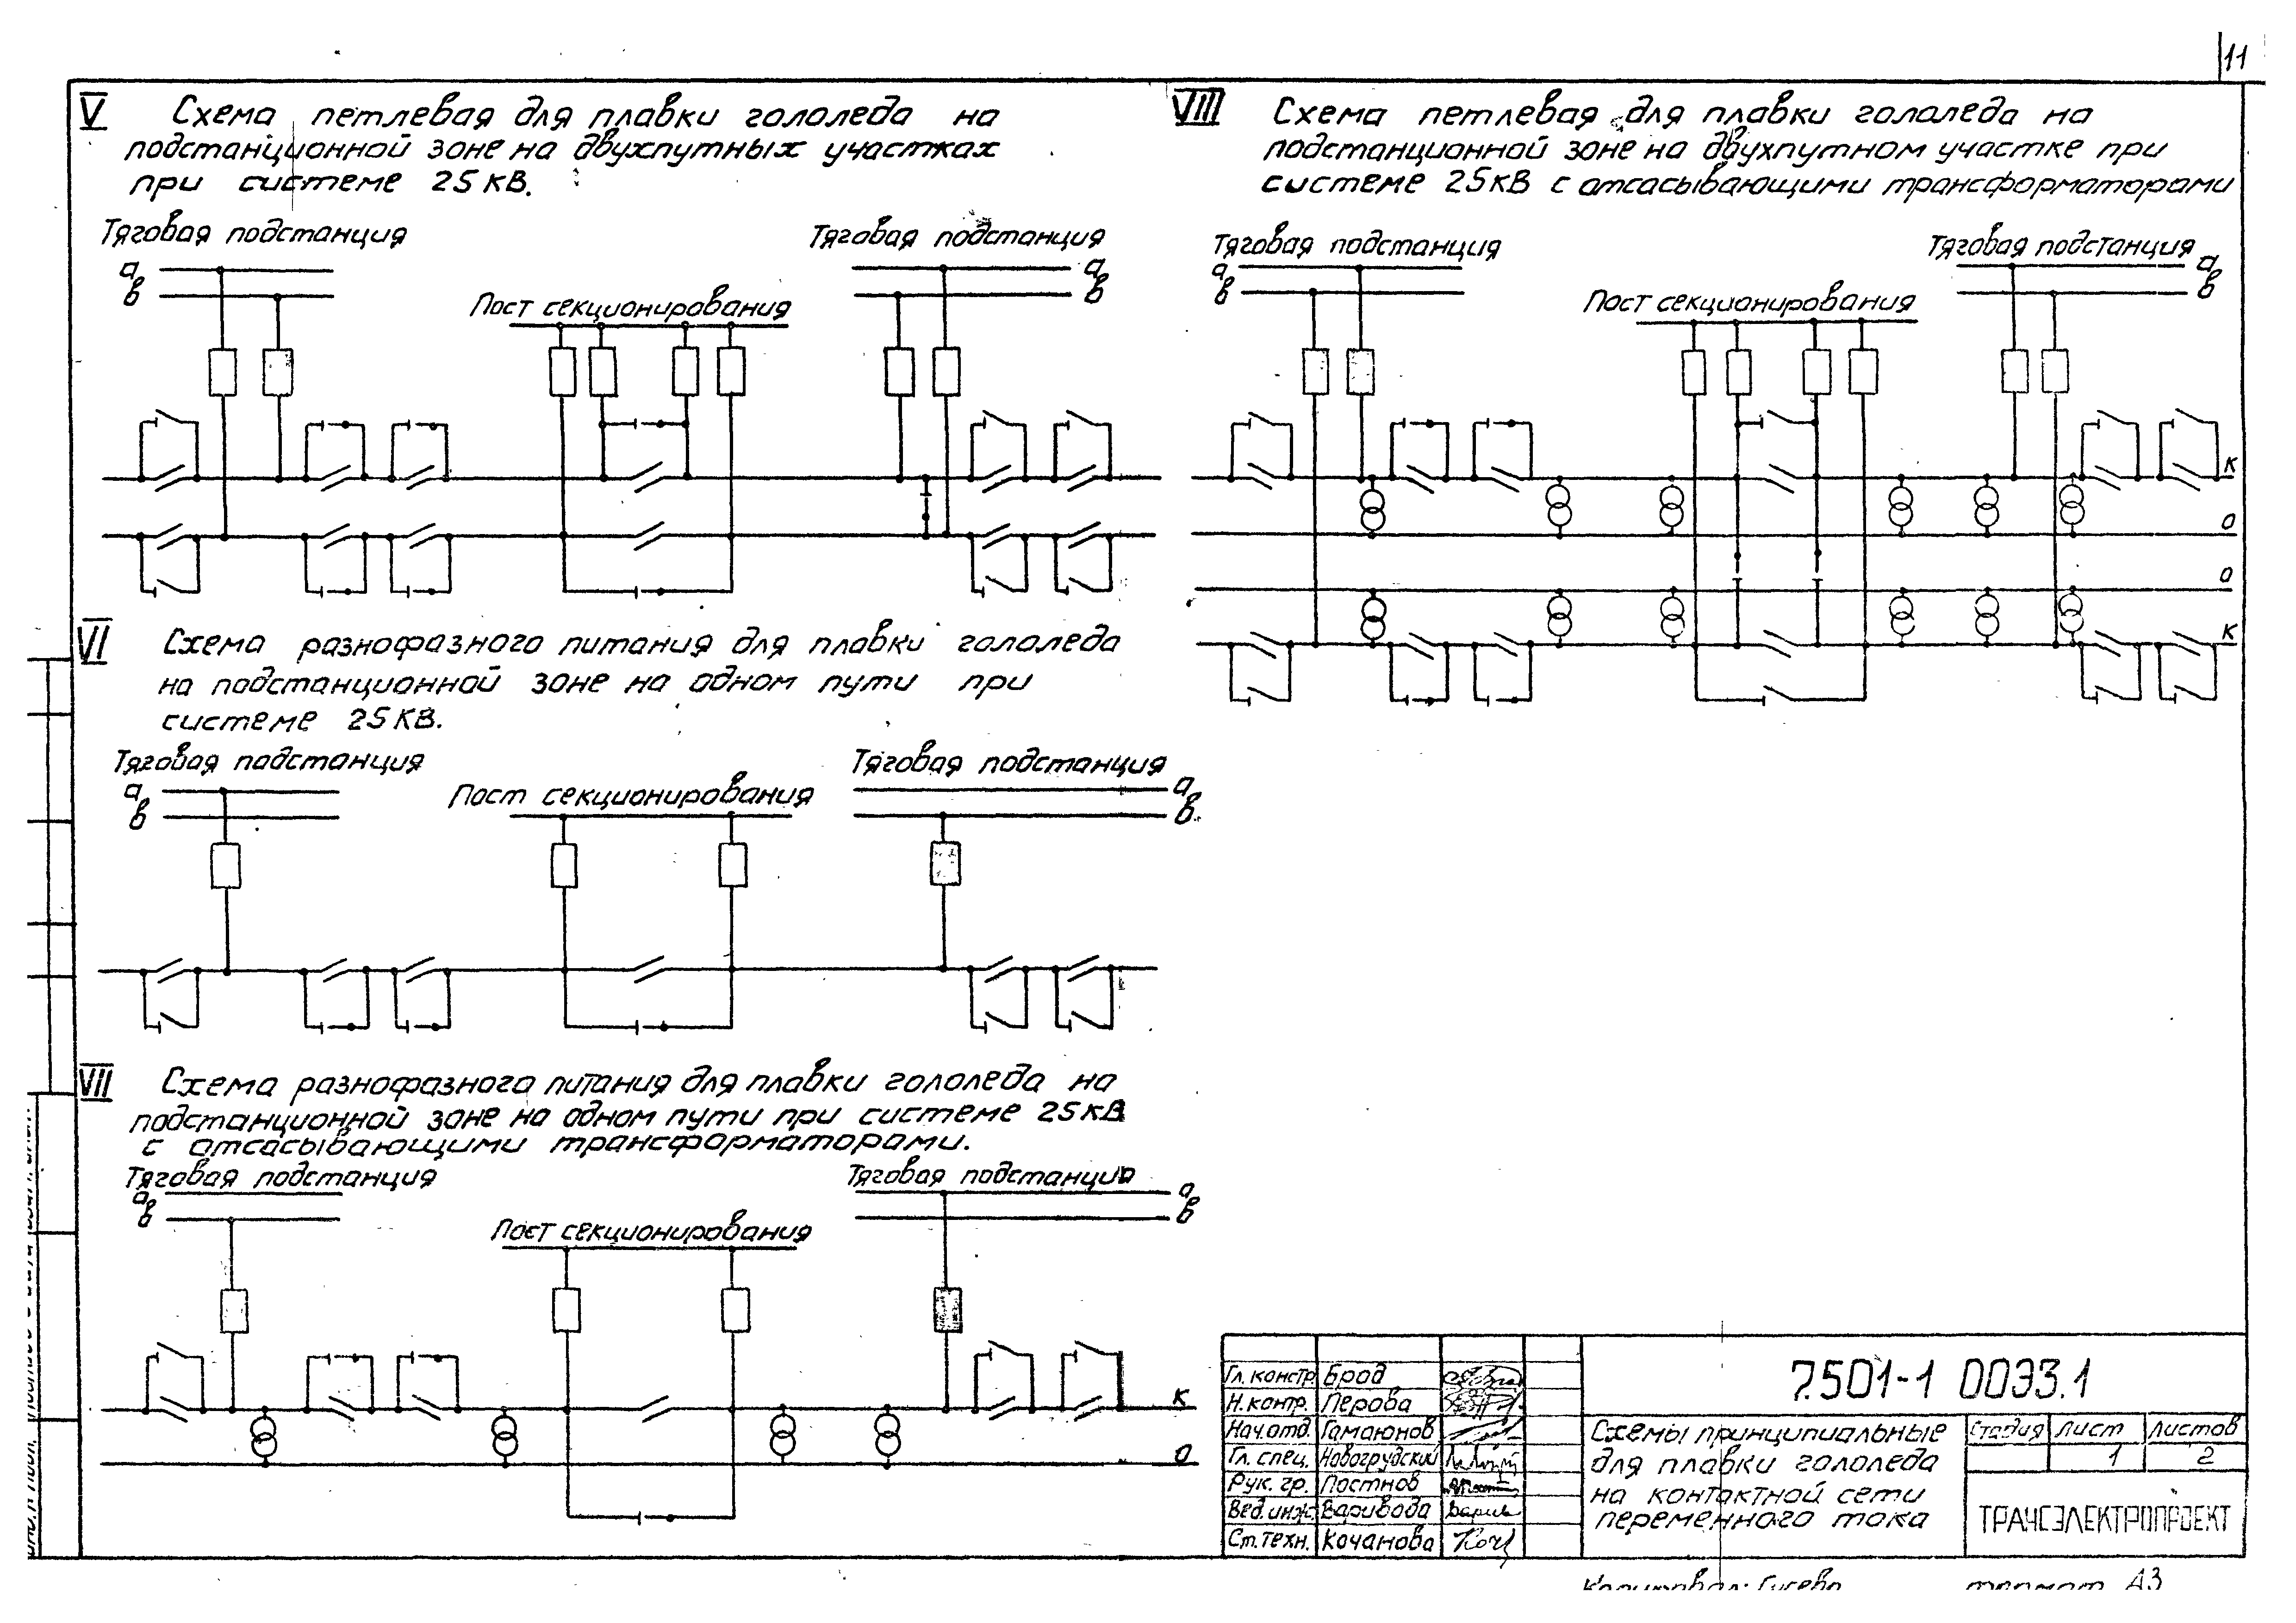 11
V Схема петлевая для плавки гололеда на
подстанционной зоне на двухпутных участках
при системе 25 кВ.
Тяговая подстанция
а
в
Пост секционирования
Тяговая подстанция
а
в
VI Схема разнофазного питания для плавки гололеда
на подстанционной зоне на одном пути при
системе 25 кВ.
Тяговая подстанция
а
в
Пост секционирования
Тяговая подстанция
а
в
VII Схема разнофазного питания для плавки гололеда на
подстанционной зоне на одном пути при системе 25 кВ
с отсасывающими трансформаторами.
Тяговая подстанция
а
в
Пост секционирования
Тяговая подстанция
а
в
К
О
VIII Схема петлевая для плавки гололеда на
подстанционной зоне на двухпутном участке при
системе 25 кВ с отсасывающими трансформаторами
Тяговая подстанция
а
в
Пост секционирования
Тяговая подстанция
а
в
К
О
О
К
Гл. констр. Брод
Н. контр. Перова
Нач. отд. Гамаюнов
Гл. спец. Новогрудский
Рук. гр. Постнов
Вед. инж. Варивода
Ст. техн. Кочанова
7.501-1 00ЭЗ.1
Схемы принципиальные
для плавки гололеда
на контактной сети
переменного тока
Стадия Лист Листов
1 2
ТРАНСЭЛЕКТРОПРОЕКТ
Копировал: Гусева формат А3